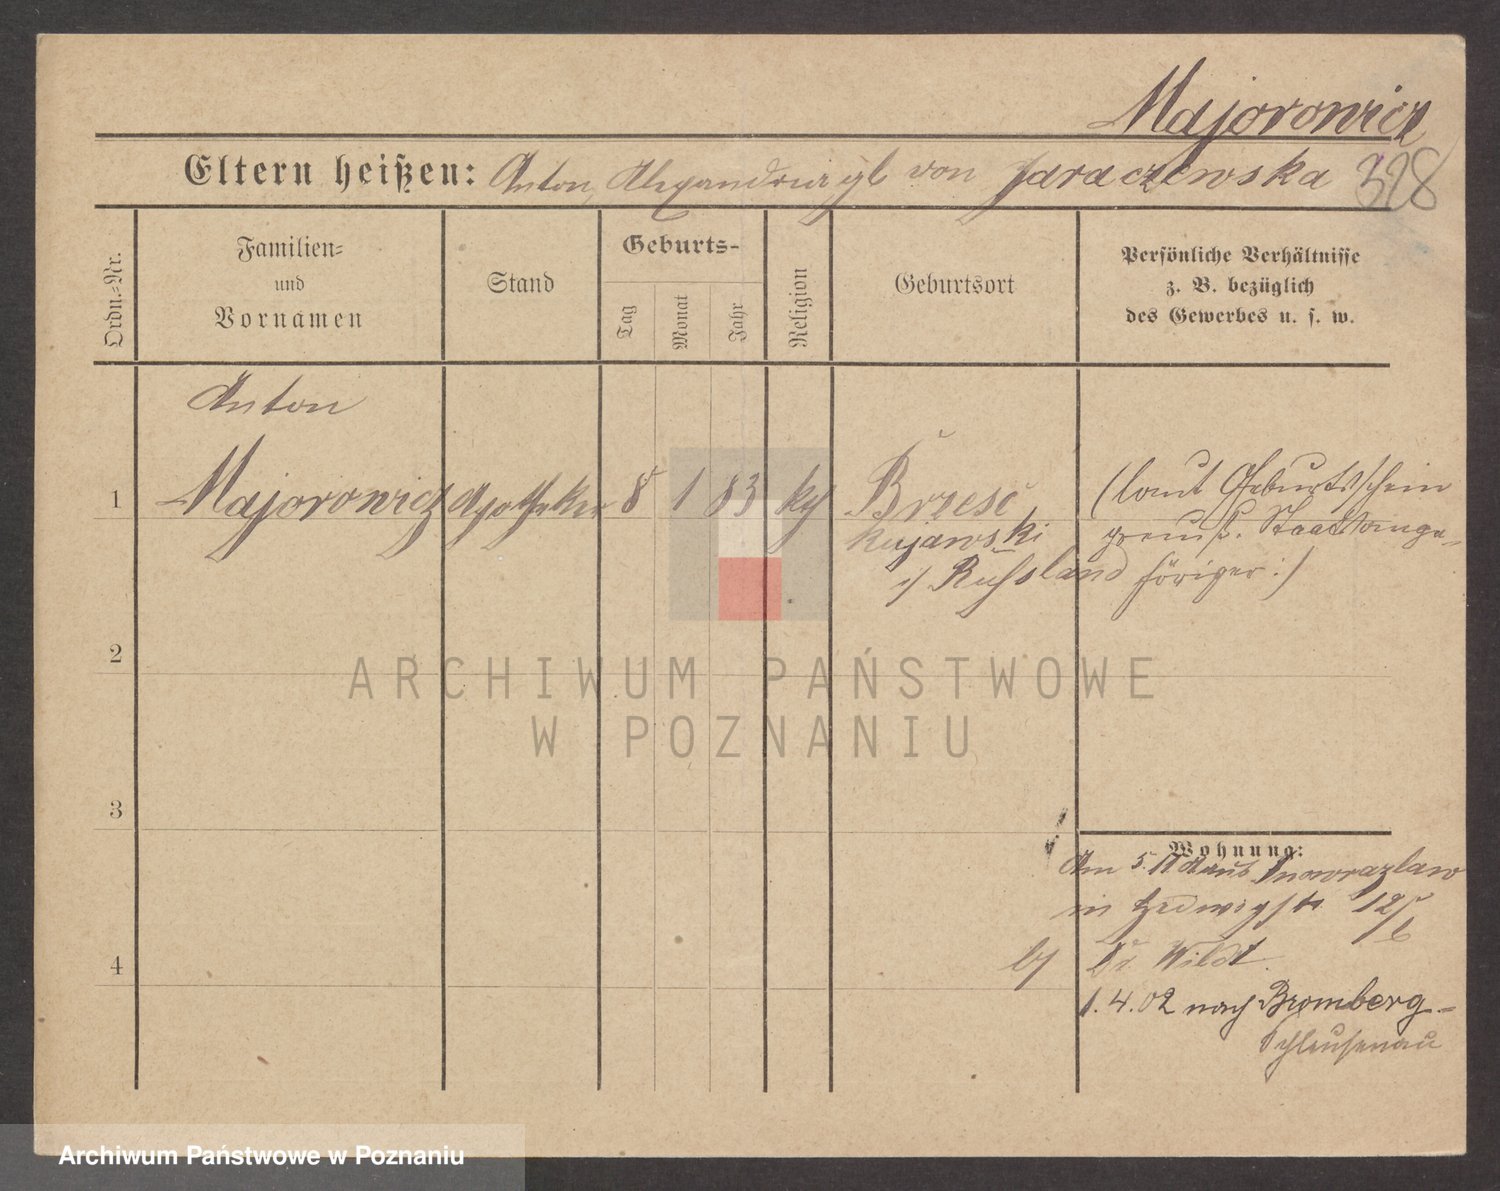 Majorowicz
Eltern heißen: Anton, Alexandria gb von Jaraczewska 328
Ordn.-Nr.
Familien-
und
Vornamen
Stand
Geburts-
Tag
Monat
Jahr
Religion
Geburtsort
Persönliche Verhältnisse
z. B. bezüglich
des Gewerbes u. s. w.
Anton
1 Majorowicz Apotheker 8 1 83 kth Brzesć (laut Geburtsschein
kujawski preuß. Staatsange-
i/ Russland höriger:)
2
3
4
Wohnung:
Am aus Inowrazlaw
in Hedwigstr 12/6
b/ Dr. Wildt.
1.4.02 nach Bromberg-
Schleusenau
ARCHIWUM PAŃSTWOWE
W POZNANIU
Archiwum Państwowe w Poznaniu